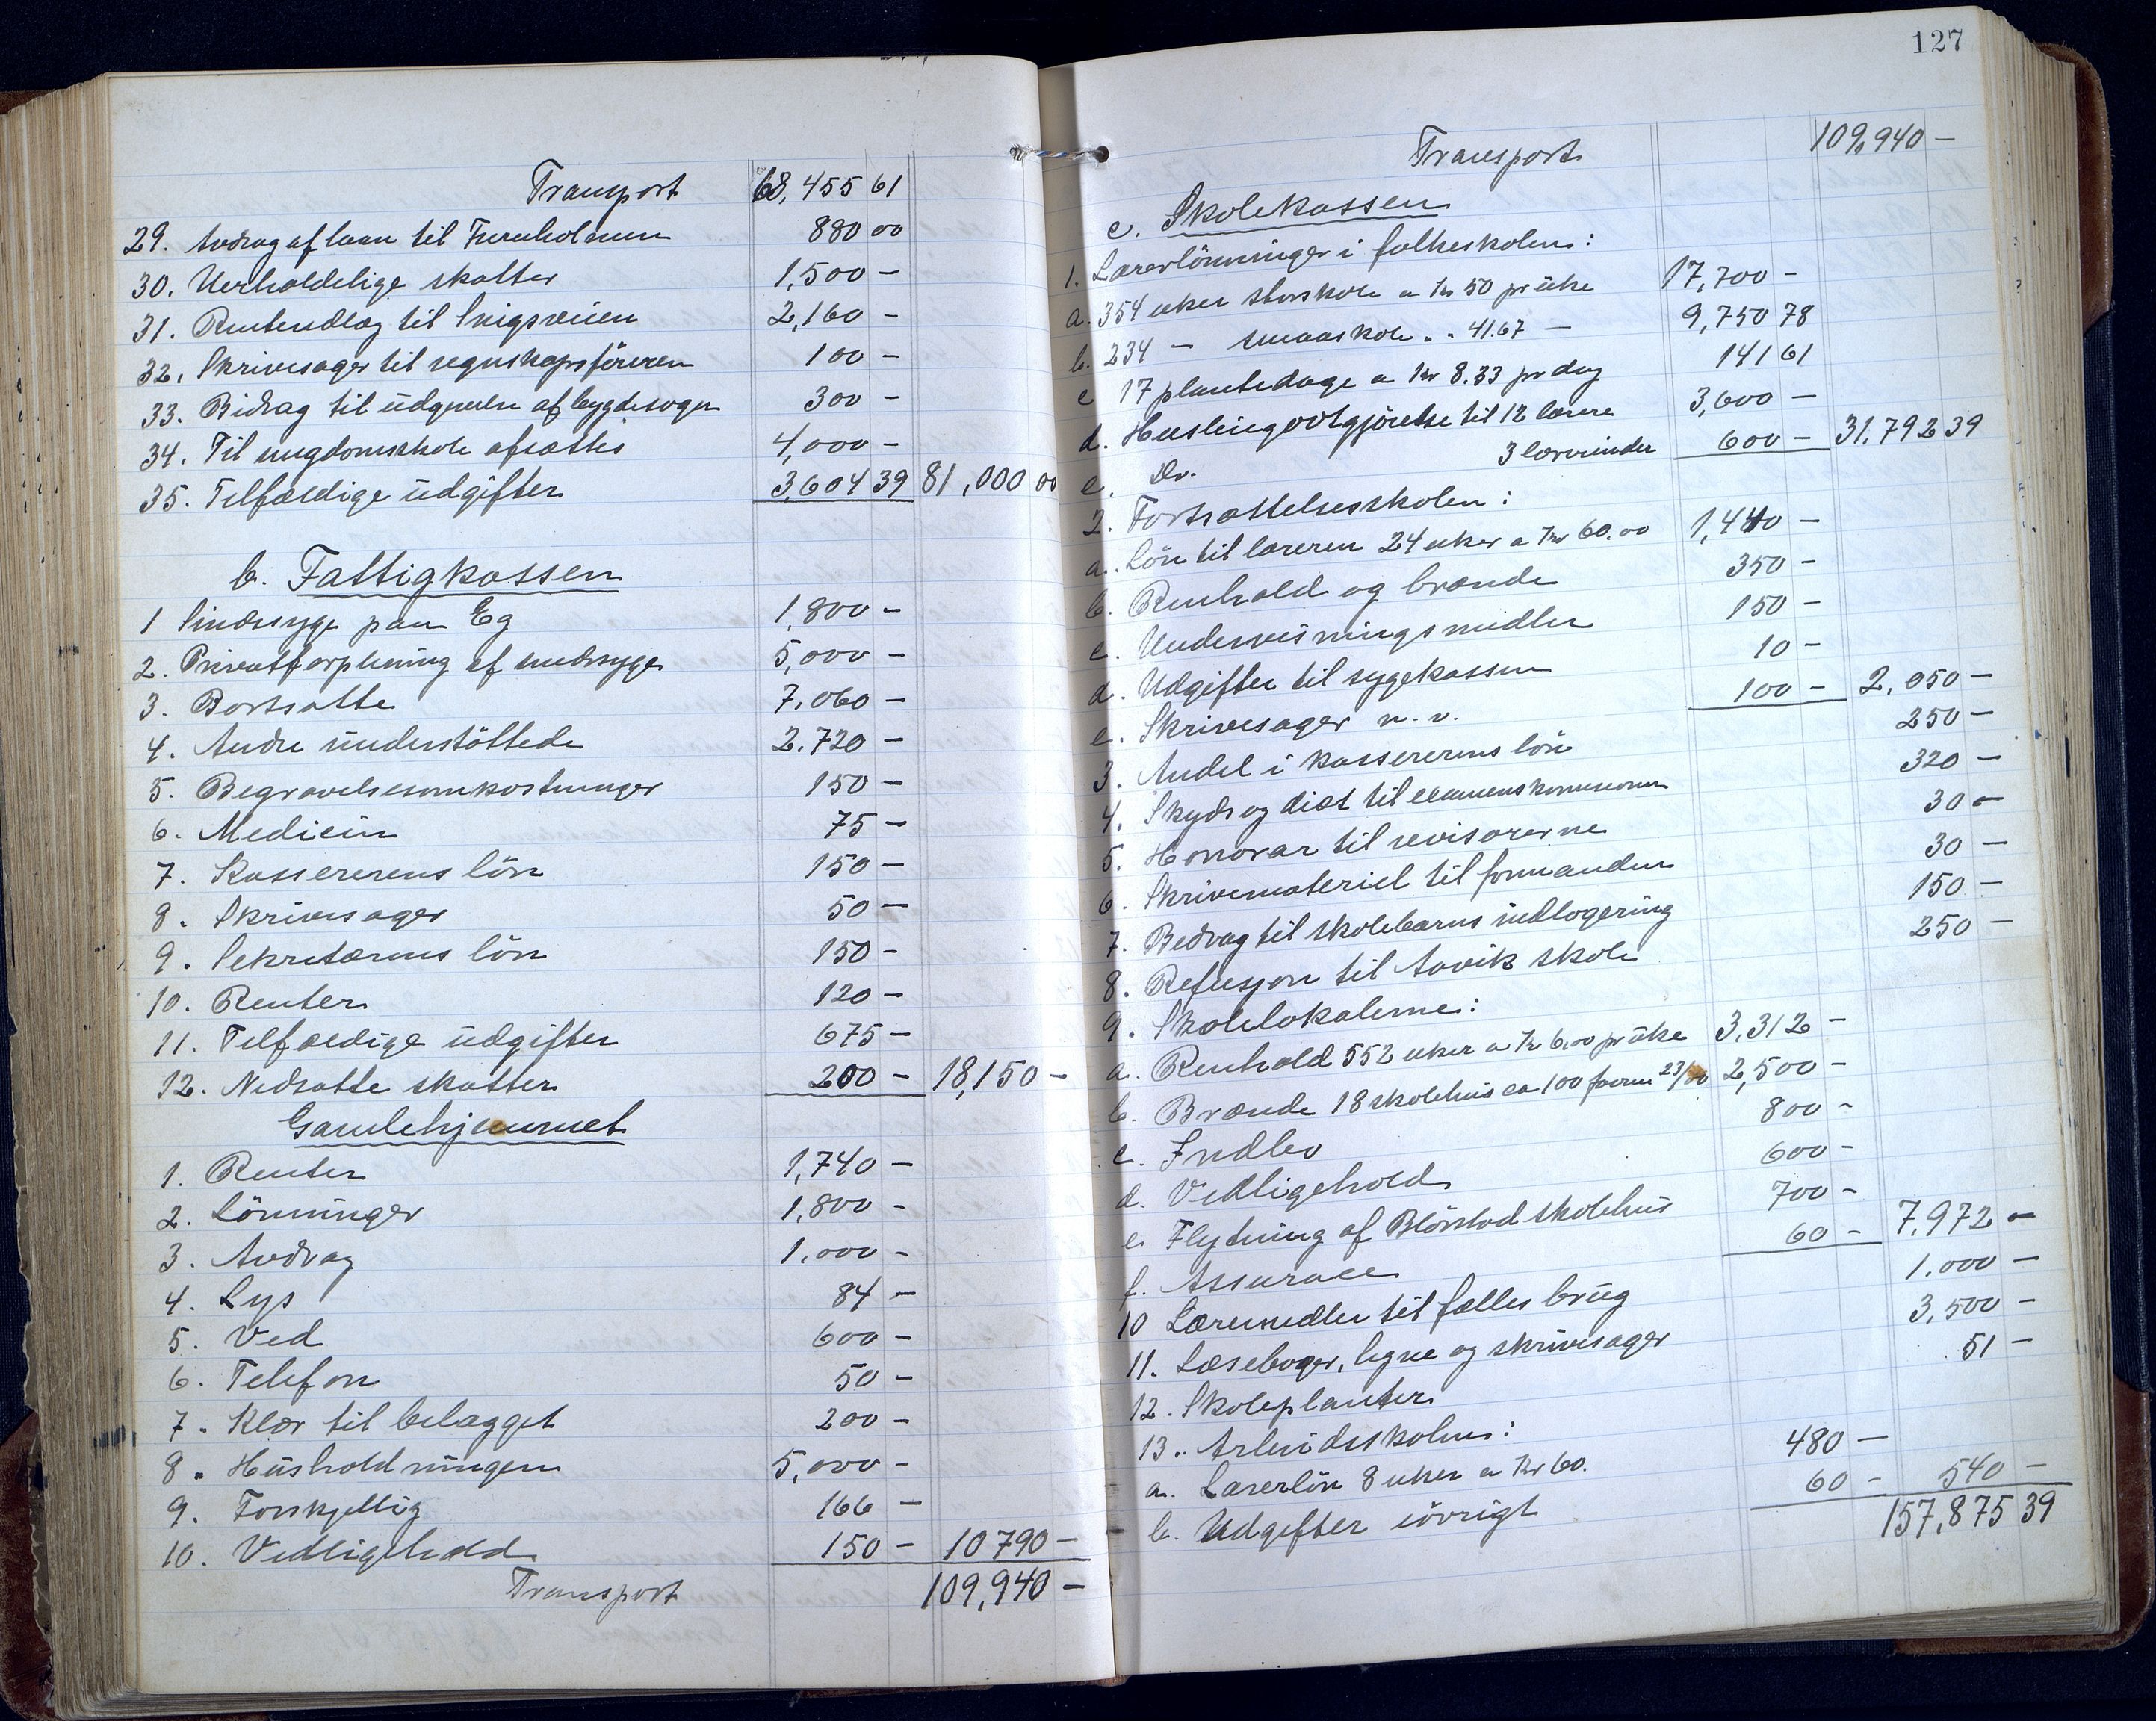 Transport 68,455 61
29. Avdrag af laan til Furuholmen 880 00
30. Uerholdelige skatter 1,500 -
31. Renteudlæg til Snigsveien 2,160 -
32. Skrivesager til regnskapsföreren 100 -
33. Bidrag til üdgivelse af bygdesogen 300 -
34. Til ungdomsskole afsættes 4,000 -
35. Tilfældige üdgifter 3,604 39 81,000 00
b. Fattigkassen
1 Sindssyge paa Eg 1,800 -
2. Privatforpleining af sindssyge 5,000 -
3. Bortsatte 7,060 -
4. Andre ünderstöttede 2.720 -
5. Begravelsesomkostninger 150 -
6. Medicin 75 -
7. Kassererens lön 150 -
8. Skrivesager 50 -
9. Sekretærens lön 150 -
10. Renter 120 -
11. Tilfældige üdgifter 675 -
12. Nedsatte skatter 200 - 18,150 -
Gamlehjemmet
1. Renter 1,740 -
2. Lönninger 1,800 -
3. Avdrag 1.000 -
4. Lys 84 -
5. Ved 600 -
6. Telefon 50 -
7. Klær til belægget 200 -
8. Hüsholdningen 5,000 -
9. Forskjellig 166 -
10. Vedligehold 150 - 10790 -
Transport 109,940 -
127
Transport 109,940 -
c. Skolekassen
1. Lærerlönninger i folkeskolen:
a. 354 uker storskole a Kr 50 pr üke 17,700 -
b. 234 - smaaskole " " 41.67 - 9,750 78
c 17 plantedage a Kr 8.33 pr dag 141 61
d. Husleiegodtgjörelse til 12 lærere 3,600 -
e. Do. 3 lærerinder 600 - 31.792 39
2. Fortsættelsesskolen:
a. Lön til læreren 24 uker a Kr 60.00 1,440 -
b. Renhold og brænde 350 -
c. Undervisningsmidler 150 -
d. Udgifter til sygekassen 10 -
e. Skrivesager m. v. 100 - 2,050 -
3. Andel i kassererens lön 250 -
4. Skyds og diæt til examenskommisionen 320 -
5. Honorar til revisorerne 30 -
6. Skrivemateriel til formanden 30 -
7. Bedrag til skolebarns indlogering 150 -
8. Refusjon til Aavik skole 250 -
9. Skolelokalerne:
a. Renhold 552 uker a Kr 6.00 pr üke 3,312 -
b. Brænde 18 skolehüs ca 100 favne 2,500 -
c. Indbo 800 -
d. Vedligehold 600 -
e. Flytning af Blörstad skolehüs 700 -
f. Assurace 60 - 7,972 -
10 Læremidler til fælles brüg 1.000 -
11. Læseboger, legne og skrivesager 3,500 -
12. Skoleplanter 51 -
13. Arbeidsskolen:
a. Lærerlön 8 uker a Kr 60. 480 -
b. Udgifter iövrigt 60 - 540 -
157,875 39